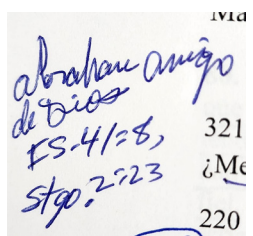 Ma
abraham amigo
de Dios
IS-41:8,
stgo. 2:23
321
¿Me
220